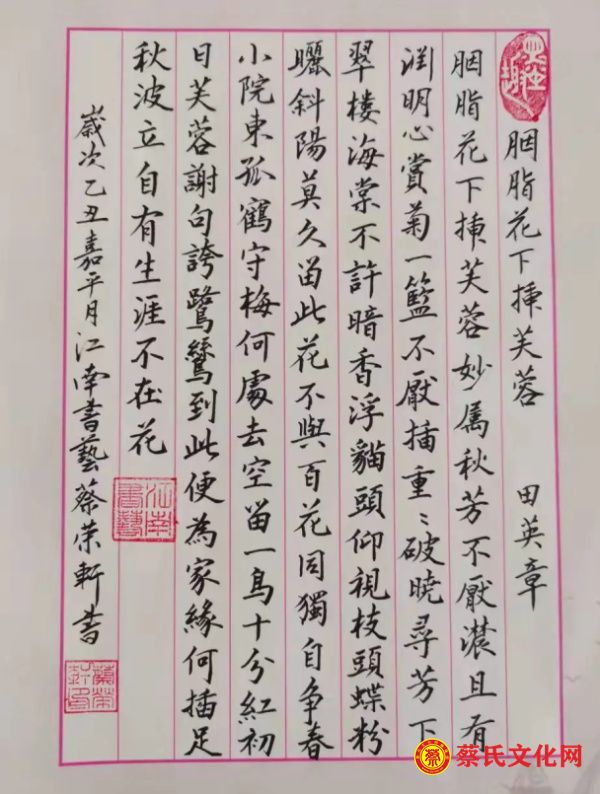 胭脂花下插芙蓉 田英章
胭脂花下插芙蓉妙属秋芳不厭濃且有
渊明心赏菊一籃不厭插重〻破曉尋芳下
翠楼海棠不許暗香浮貓頭仰視枝頭蝶粉
曬斜陽莫久留此花不與百花同獨自争春
小院東孤鶴守梅何處去空留一鳥十分紅初
日芙蓉謝句誇鷺鷥到此便為家緣何插足
秋波立自有生涯不在花
歲次乙丑嘉平月江南書藝蔡荣軒書
江南書藝
蔡氏文化网